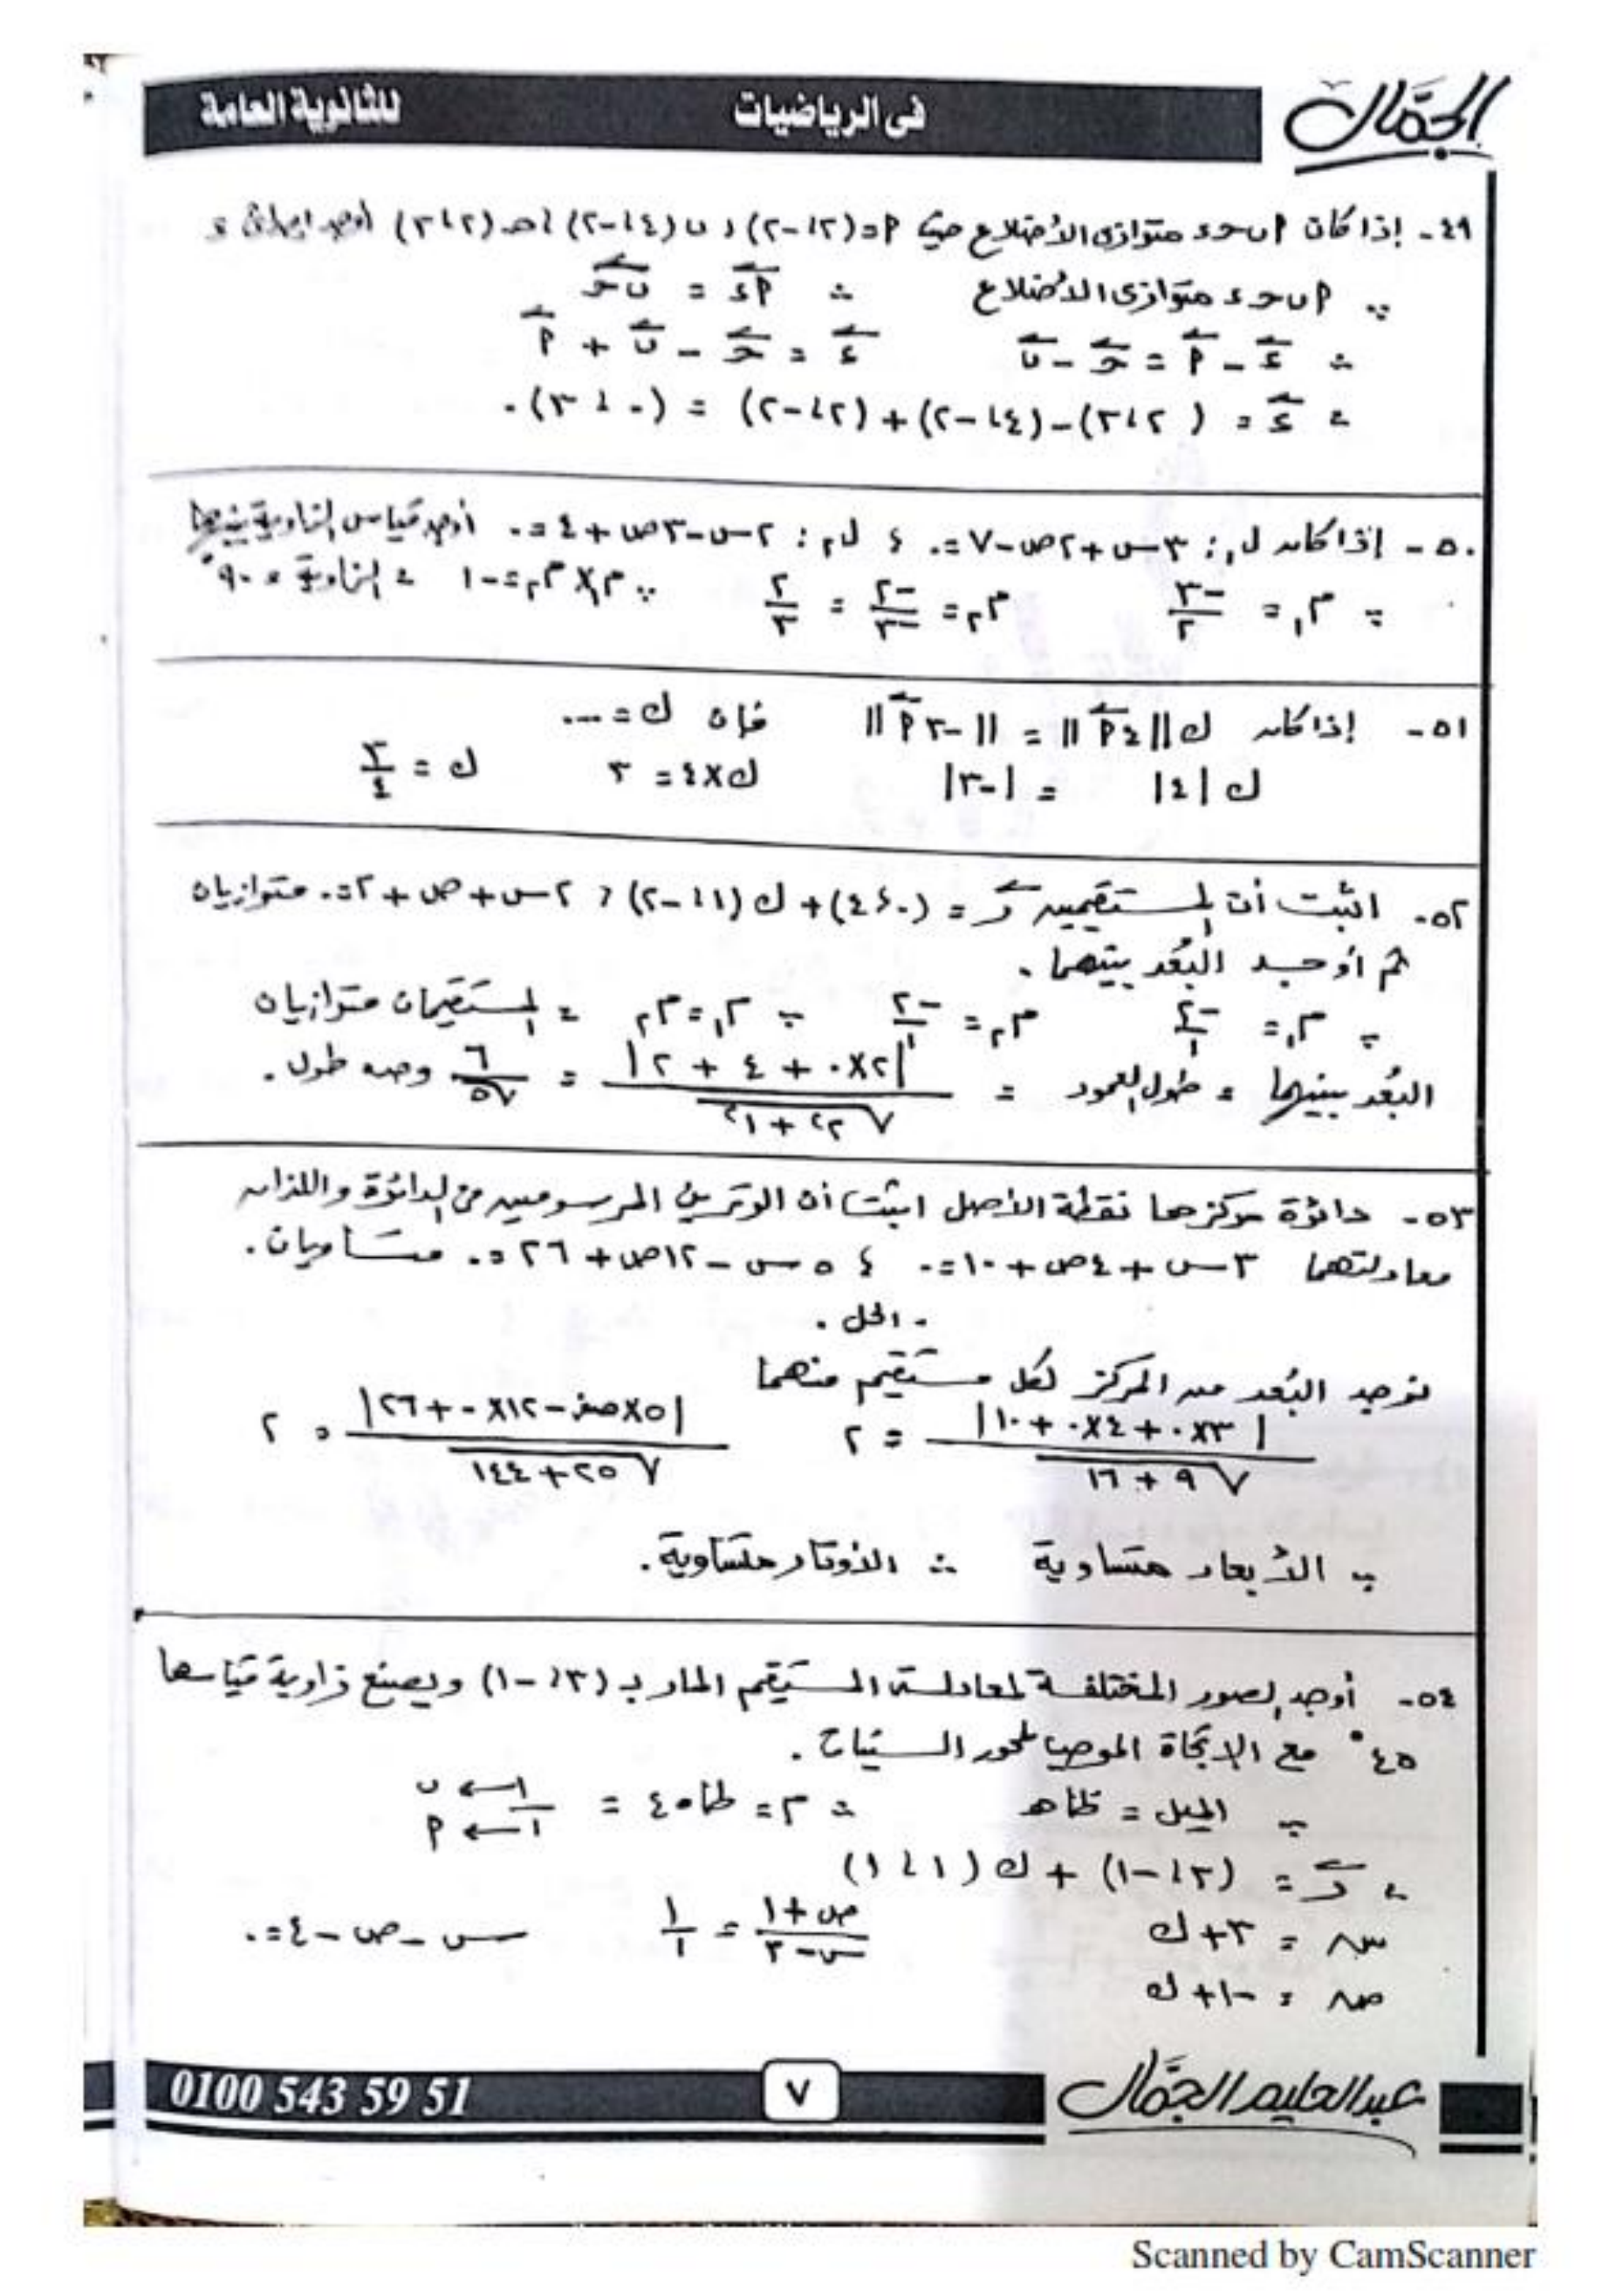 الجمّال
فى الرياضيات
للثانوية العامة
٤٩- إذا كان P ب ح ء متوازى الأضلاع حيث P = (٢، -٢) ، ب (٤، -٢) ، ح (٢، ٣) أوجد إحداثى ء
∵ P ب ح ء متوازى الأضلاع ∴ Pء = ب ح
∴ ء - P = ح - ب ء = ح - ب + P
∴ ء = (٢، ٣) - (٤، -٢) + (٢، -٢) = (٠، ٣).
٥٠- إذا كان ل١: ٣س + ٢ص - ٧ = ٠ ، ل٢: ٢س - ٣ص + ٤ = ٠ أوجد قياس الزاوية بينهما
∵ م١ = -٣/٢ م٢ = -٢/-٣ = ٢/٣ ∵ م١ × م٢ = -١ ∴ الزاوية = ٩٠°
٥١- إذا كان ك ||٤P|| = ||-٣P|| فإن ك = ...
ك |٤| = |-٣| ك × ٤ = ٣ ك = ٣/٤
٥٢- اثبت أن المستقيمين ر = (٠، ٤) + ك (١، -٢) ، ٢س + ص + ٢ = ٠ متوازيان
ثم أوجد البُعد بينهما.
∵ م١ = -٢/١ م٢ = -٢/١ ∵ م١ = م٢ ∴ المستقيمان متوازيان
البُعد بينهما = طول العمود = |٢×٠ + ٤ + ٢| / √(٢² + ١²) = ٦/√٥ وحده طول.
٥٣- دائرة مركزها نقطة الأصل اثبت أن الوترين المرسومين فى الدائرة واللذان
معادلتهما ٣س + ٤ص + ١٠ = ٠ ، ٥س - ١٢ص + ٢٦ = ٠ متساويان.
. الحل .
نوجد البُعد من المركز لكل مستقيم منهما
|٣×٠ + ٤×٠ + ١٠| / √(٩ + ١٦) = ٢ |٥×صفر - ١٢×٠ + ٢٦| / √(٢٥ + ١٤٤) = ٢
∵ الأبعاد متساوية ∴ الأوتار متساوية.
٥٤- أوجد الصور المختلفة لمعادلة المستقيم المار بـ (٣، -١) ويصنع زاوية قياسها
٤٥° مع الإتجاة الموجب لمحور السينات.
∵ الميل = ظا هـ ∴ م = ظا ٤٥ = ١/١ ← ب ← P
∴ ر = (٣، -١) + ك (١، ١)
س = ٣ + ك (ص + ١)/(س - ٣) = ١/١ س - ص - ٤ = ٠
ص = -١ + ك
عبدالحليم الجمّال
٧
0100 543 59 51
Scanned by CamScanner